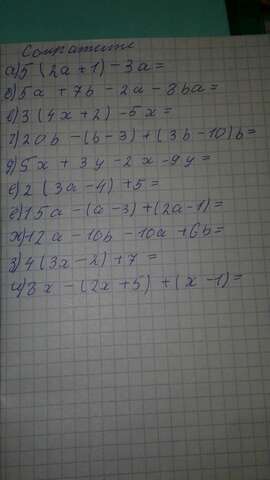 Сократите
а) 5(2a+1)-3a=
б) 5a + 7b - 2a - 8ba=
в) 3(4x+2)-5x=
г) 20b - (b-3)+(3b-10)b=
д) 5x + 3y - 2x - 9y=
е) 2(3a-4)+5=
ё) 15a-(a-3)+(2a-1)=
ж) 12a - 10b - 10a + 6b=
з) 4(3x-2)+7=
и) 8x-(2x+5)+(x-1)=